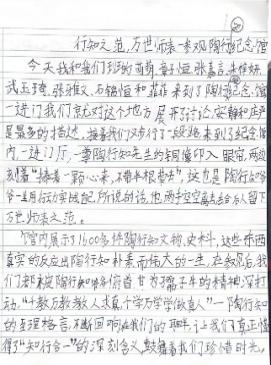 行知之范,万世师表—参观陶行知纪念馆
今天我和我们班的 张嘉言
武玉琦、张雅文、石锦恒和 来到了陶行知纪念馆
一进门我们就对这个地方展开讨论,安静和庄严
是最多的描述。接着我们又步行了一段路来到了纪念馆
内,一进门厅,一尊陶行知先生的铜像印入眼帘,两边
刻着“捧着一颗心来,不带半根草去”,这也是陶行知
一生用行动实践配,所说的话,他两手空空离去给后人留下
万世师表之范。
馆内展示了1600多件陶行知文物、史料,这些东西
真实的反应出陶行知朴素而伟大的一生,在参观后,我
们都被陶行知 俯首甘为孺子牛的精神深打
动。“千教万教教人求真,千学万学学做真人”—陶行知
的至理格言,不断回响在我们的耳畔,让我们真正懂
得了“知行合一”的深刻含义,鼓舞着我们珍惜时光。